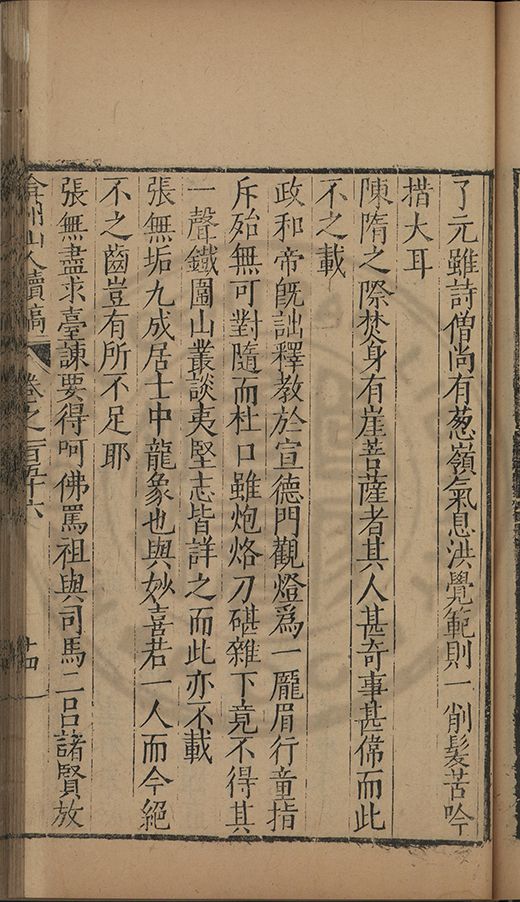 了元雖詩僧尚有葱嶺氣息洪覺範則一削髮苦吟
措大耳
陳隋之際焚身有崖菩薩者其人甚奇事甚偉而此
不之載
政和帝旣詘釋教於宣德門觀燈爲一龎眉行童指
斥殆無可對隨而杜口雖炮烙刀碪雜下竟不得其
一聲鐵圍山叢談夷堅志皆詳之而此亦不載
張無垢九成居士中龍象也與妙喜若一人而今絕
不之齒豈有所不足耶
張無盡求臺諫要得呵佛罵祖與司馬二呂諸賢放
弇州山人續稿 卷之一百五十六